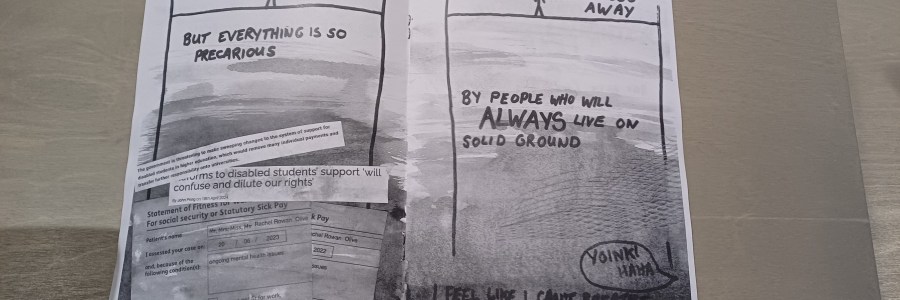 BUT EVERYTHING IS SO
PRECARIOUS
The government is threatening to make sweeping changes to the system of support for
disabled students in higher education, which would remove many individual payments and
transfer further responsibility onto universities.
to disabled students' support 'will
confuse and dilute our rights'
Statement of Fitness for
For social security or Statutory Sick Pay
Patient's name
Rachel Rowan Olive
I assessed your case on:
06 / 2023
and, because of the
following condition(s):
ongoing mental health issues
k Pay
Rowan Olive
2022
issues
for work.
AWAY
BY PEOPLE WHO WILL
ALWAYS LIVE ON
SOLID GROUND
YOINK!
HAHA
I FEEL LIKE I